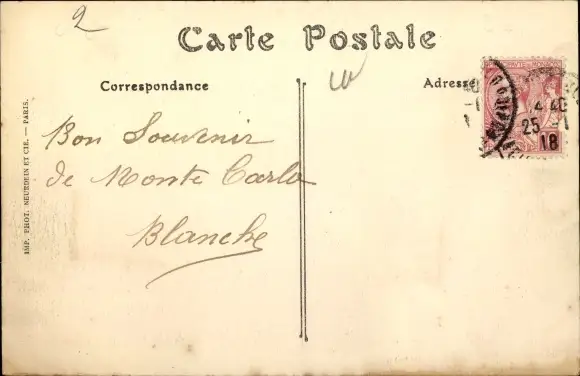 2
Carte Postale
Correspondance
Adresse
Bon Souvenir
de Monte Carlo
Blanche
IMP. PHOT. NEURDEIN ET CIE. — PARIS.
25 - 1
18